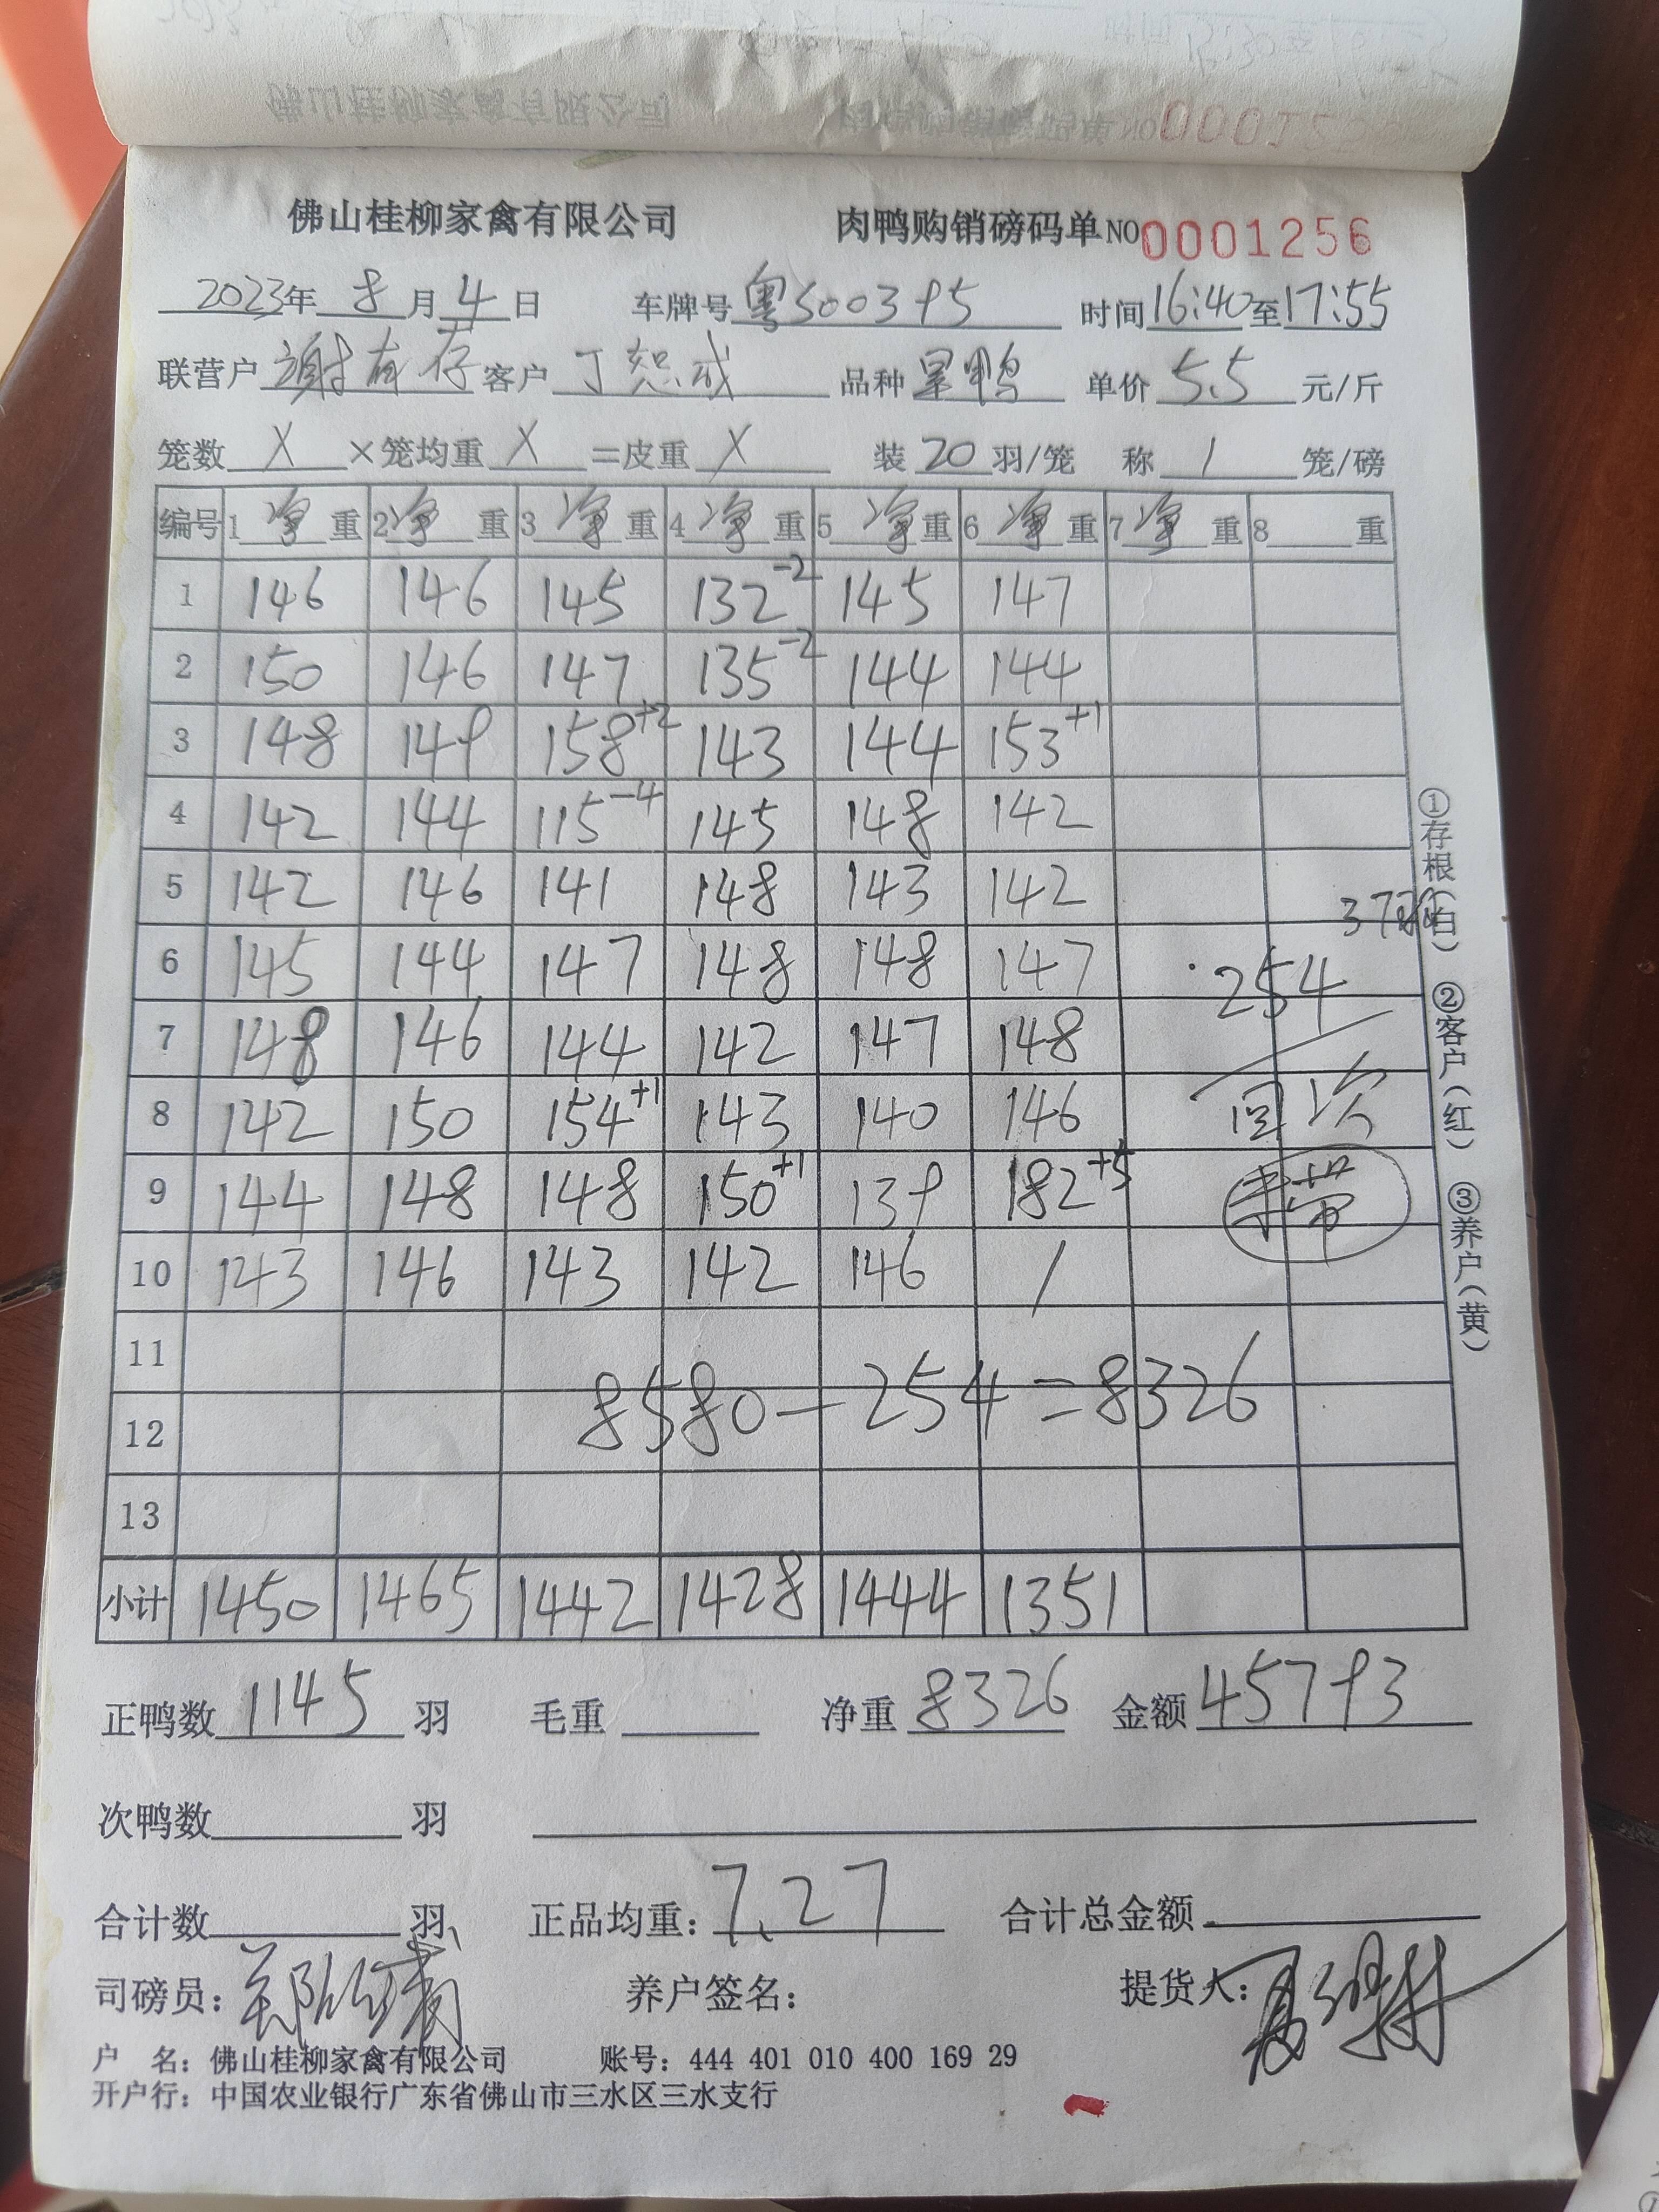 佛山桂柳家禽有限公司 肉鸭购销磅码单 NO 0001256
2023年 8月4日 车牌号 粤S00395 时间16:40至17:55
联营户 谢有存 客户 丁恕成 品种 呈鸭 单价 5.5 元/斤
笼数 X ×笼均重 X =皮重 X 装 20 羽/笼 称 1 笼/磅
编号 1 净重 2 净重 3 净重 4 净重 5 净重 6 净重 7 净重 8 重
1 146 146 145 132-2 145 147
2 150 146 147 135-2 144 144
3 148 149 158+2 143 144 153+1
4 142 144 115-4 145 148 142
5 142 146 141 148 143 142
6 145 144 147 148 148 147 254
7 148 146 144 142 147 148
8 142 150 154+1 143 140 146 回次
9 144 148 148 150+1 139 182+5
10 143 146 143 142 146 /
11
8580-254=8326
12
13
小计 1450 1465 1442 1428 1444 1351
①存根(白) ②客户(红) ③养户(黄)
正鸭数 1145 羽 毛重 净重 8326 金额 45793
次鸭数 羽
合计数 羽 正品均重: 7.27 合计总金额
司磅员: 养户签名: 提货人:
户 名: 佛山桂柳家禽有限公司 账号: 444 401 010 400 169 29
开户行: 中国农业银行广东省佛山市三水区三水支行